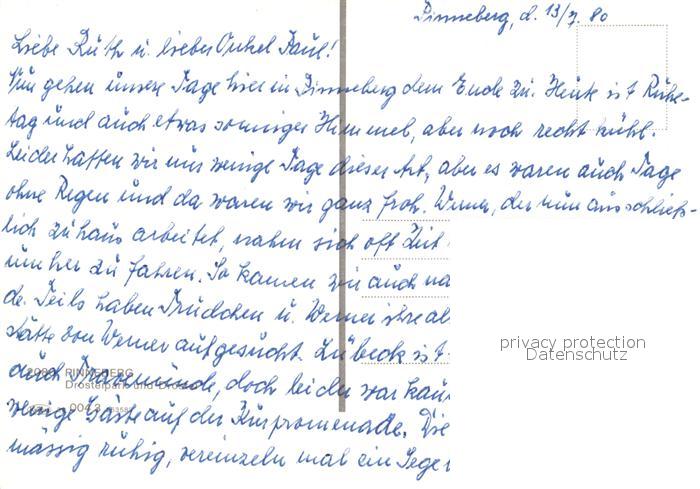 Pinneberg, d. 13/7. 80
Liebe Ruth u. lieber Onkel Paul!
Nun gehen unsere Tage hier in Pinneberg dem Ende zu. Heute ist Ruhe-
tag und auch etwas sonniger Himmel, aber noch recht kühl.
Leider hatten wir nur wenige Tage dieser Art, aber es waren auch Tage
ohne Regen und da waren wir ganz froh. Werner, der nun ausschließ-
lich zuhaus arbeitet, nahm sich oft Zeit
umher zu fahren. So kamen wir auch na
de. Teils haben Trudchen u. Werner ihre al
stätte von Werner aufgesucht. Lübeck ist
2080 PINNEBERG
durch Travemünde, doch leider war kau
Drosteipark und
wenige Gäste auf der Kurpromenade. Die
mässig ruhig, vereinzeln mal ein Sege
privacy protection
Datenschutz